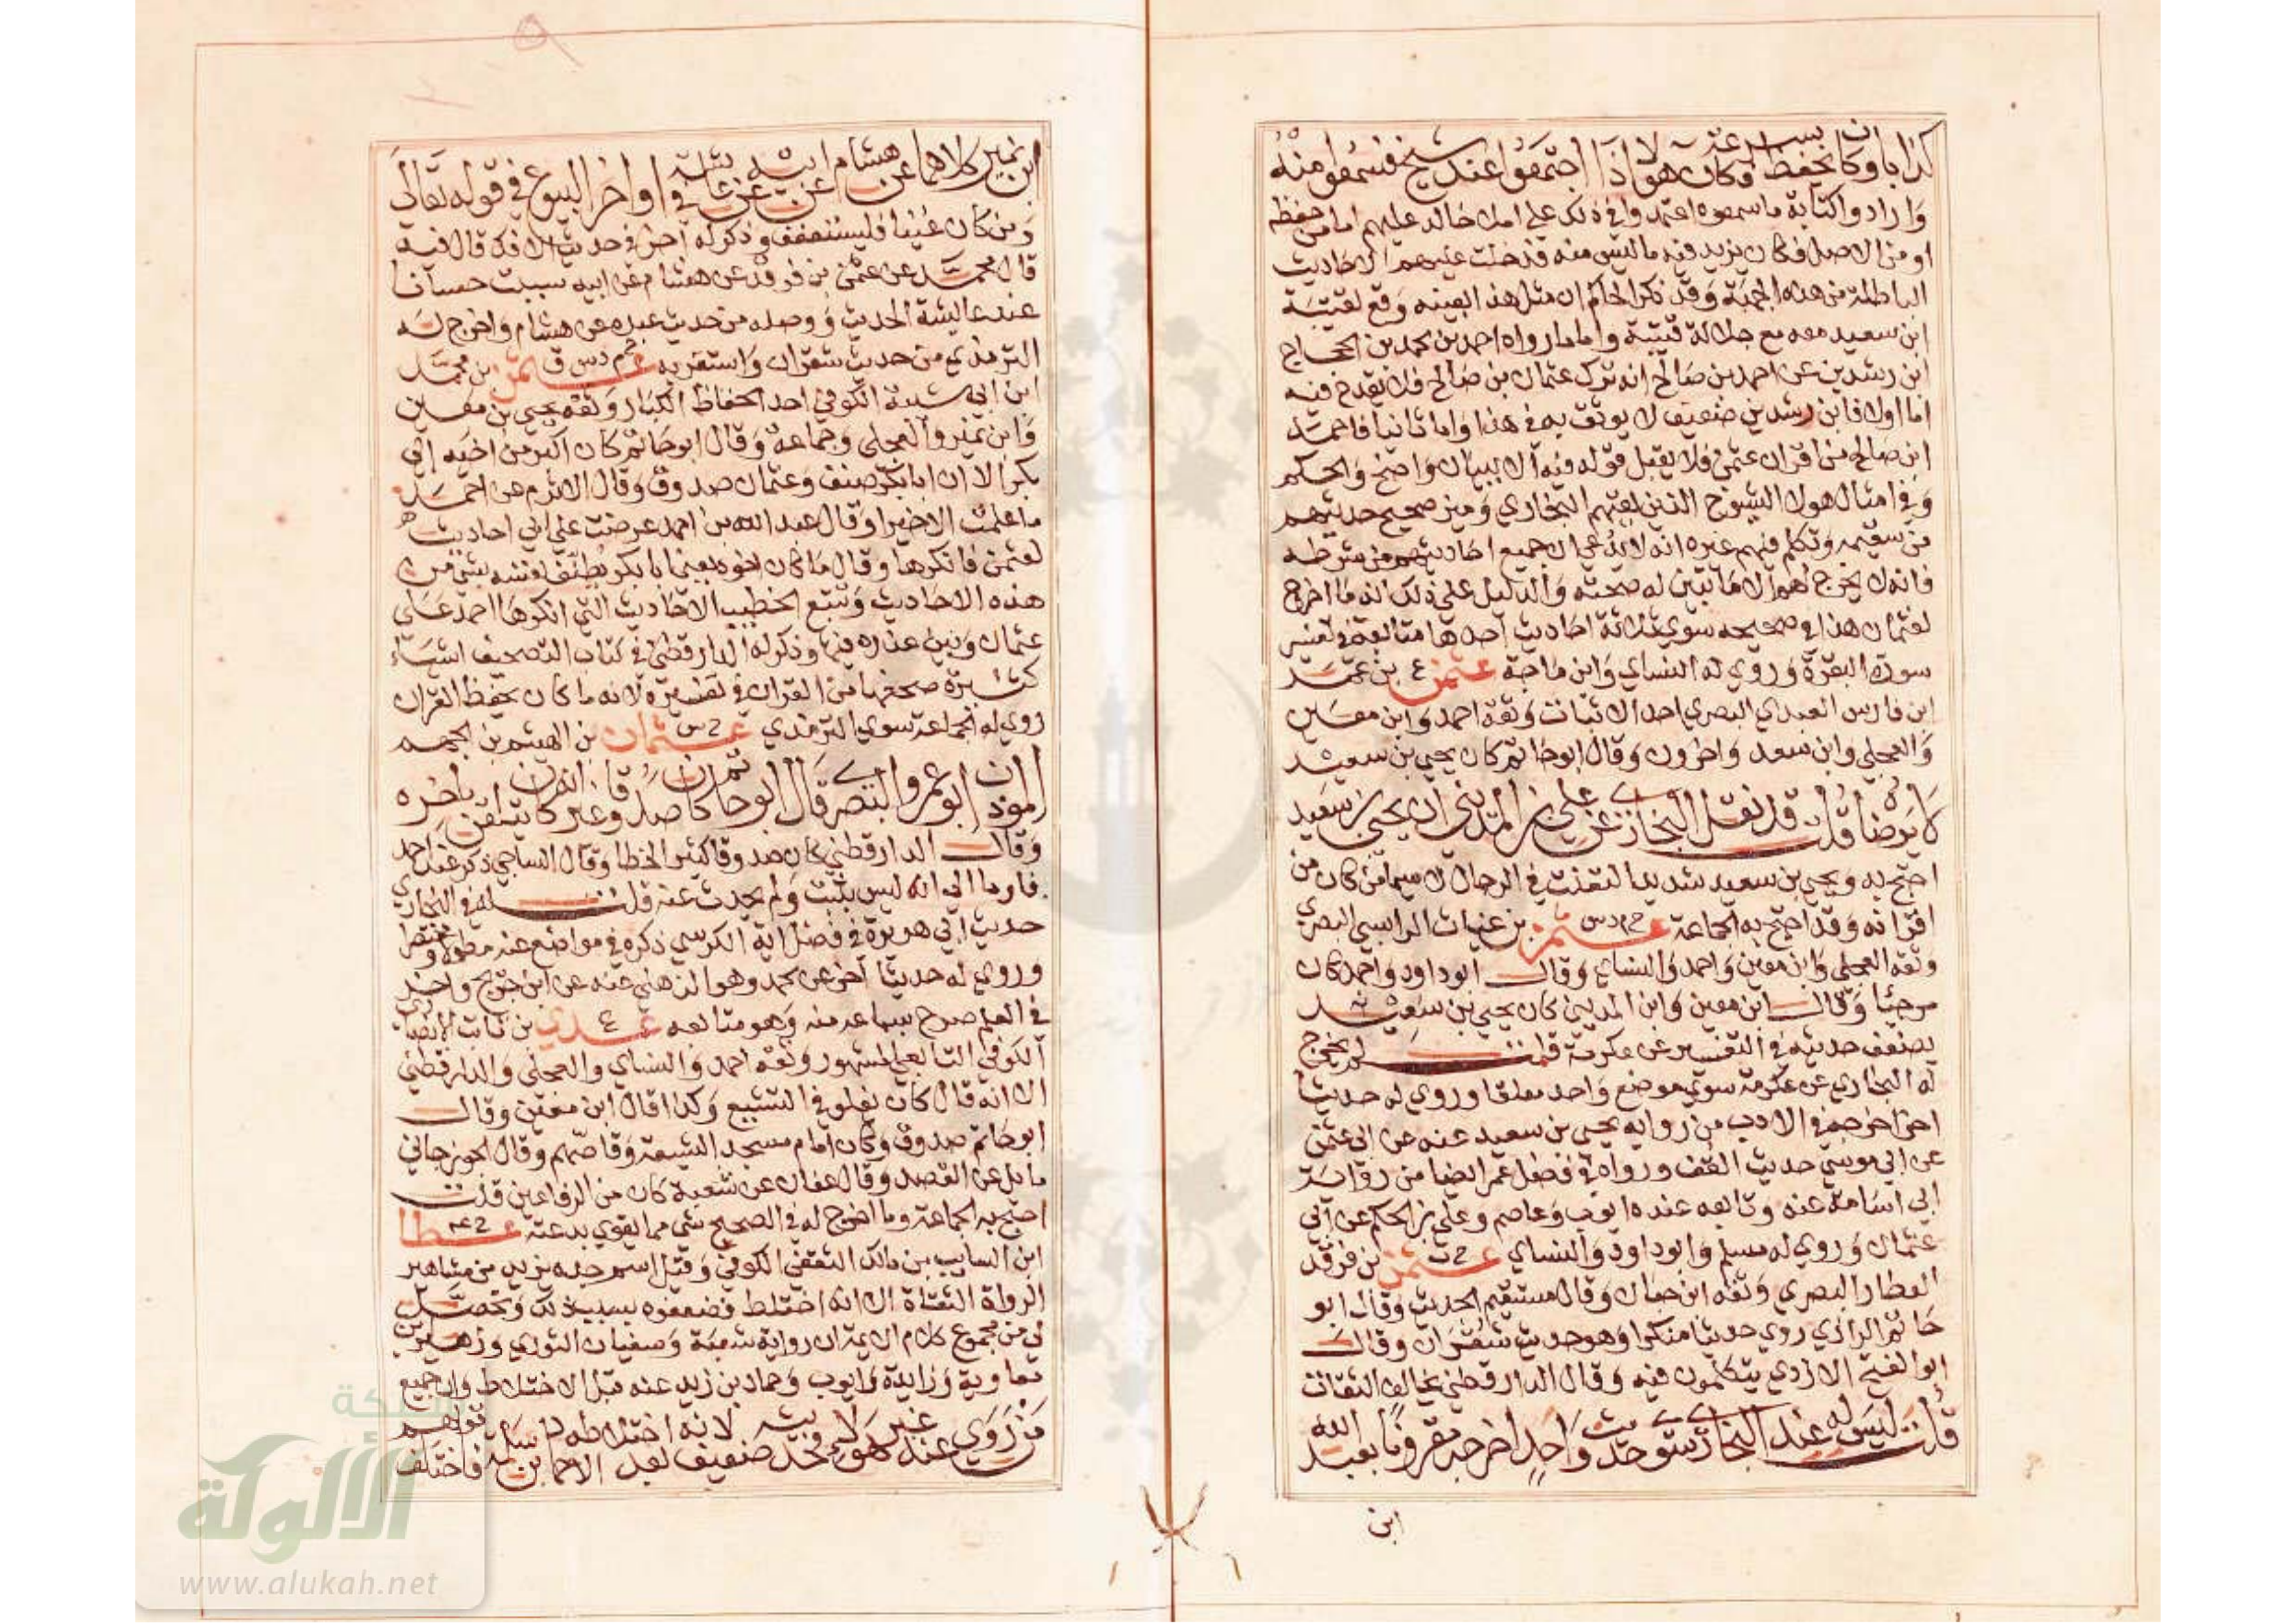 كذابا وكان يحفظ بسرعة وكان هولاء اذا اجتمعوا عند شيخ فسمعوا منه
وارادوا كتابة ما سمعوه اعتمدوا في ذلك على املاء خالد عليهم اما من حفظه
او من الاصل فكان يزيد فيه ما ليس منه فدخلت عليهم الاحاديث
الباطلة من هذه الجهة وقد ذكر الحاكم ان مثل هذا بعينه وقع لقتيبة
ابن سعيد معه مع جلالة قتيبة واما ما رواه احمد بن محمد بن الحجاج
ابن رشدين عن احمد بن صالح انه ترك عثمان بن صالح فلا يقدح فيه
اما اولا فابن رشدين ضعيف لا يوثق به في هذا واما ثانيا فاحمد
ابن صالح من اقران عثمن فلا يقبل قوله فيه الا ببيان واضح والحكم
في امثال هولا الشيوخ الذين لقيهم البخاري وميز صحيح حديثهم
من سقيمه وتكلم فيهم غيره انه لا يدعي ان جميع احاديثهم من شرطه
فانه لا يخرج لهم الا ما تبين له صحته والدليل على ذلك انه ما اخرج
لعثمان هذا في صحيحه سوى ثلاثة احاديث احدها متابعة في تفسير
سورة البقرة وروى له النساي وابن ماجة عثمن ع بن عمر
ابن فارس العبدي البصري احد الاثبات وثقه احمد وابن معين
والعجلي وابن سعد واخرون وقال ابو حاتم كان يحيى بن سعيد
لا يرضاه قلت قد نقل البخاري عن علي بن المديني ان يحيى بن سعيد
احتج به ويحيى بن سعيد شديد التعنت في الرجال لا سيما من كان من
اقرانه وقد احتج به الجماعة خ م د س عثمن بن غياث الراسبي البصري
وثقه العجلي وابن معين واحمد والنساي وقال ابو داود واحمد كان
مرجيا وقال ابن معين وابن المديني كان يحيى بن سعيد
يضعف حديثه في التفسير عن عكرمة قلت لم يخرج
له البخاري عن عكرمة سوى موضع واحد معلقا وروى له حديثا
اخر اخرجه في الادب من رواية يحيى بن سعيد عنه عن ابي عثمن
عن ابي موسى حديث القف ورواه في فضل عمر ايضا من رواية
ابي اسامة عنه وتابعه عنده ايوب وعاصم وعلي بن الحكم عن ابي
عثمان وروى له مسلم وابو داود والنساي خ ت عثمن بن فرقد
العطار البصري وثقه ابن حبان وقال مستقيم الحديث وقال ابو
حاتم الرازي روى حديثا منكرا وهو حديث شقران وقال
ابو الفتح الازدي يتكلمون فيه وقال الدارقطني يخالف الثقات
قلت ليس له عند البخاري سوى حديث واحد اخرجه مقرونا بعبد الله
ابن
ابن نمير كلاهما عن هشام عن ابيه عن عائشة في اواخر البيوع في قوله تعالى
ومن كان غنيا فليستعفف وذكر له اخر في حديث الافك قال فيه
قال محمد عن عثمن بن فرقد عن هشام عن ابيه سببت حسانا
عند عائشة الحديث ووصله من حديث عبده عن هشام واخرج له
الترمذي من حديث شقران واستغربه خ م د س ق عثمن بن محمد
ابن ابي شيبة الكوفي احد الحفاظ الكبار وثقه يحيى بن معين
وابن نمير والعجلي وجماعة وقال ابو حاتم كان اكبر من اخيه ابي
بكر الا ان ابا بكر صنف وعثمان صدوق وقال الاثرم عن احمد
ما علمت الا خيرا وقال عبد الله بن احمد عرضت على ابي احاديث
لعثمن فانكرها وقال ما كان اخوه يعني ابا بكر تطنف نفسه بشي من
هذه الاحاديث وتتبع الخطيب الاحاديث التي انكرها احمد على
عثمان وبين عذره فيها وذكر له الدارقطني في كتاب التصحيف اشياء
كثيرة صحفها من القران في تفسيره لانه ما كان يحفظ القران
روى له الجماعة سوى الترمذي خ س عثمان بن الهيثم بن الجهم
الموذن ابو عمرو البصري قال ابو حاتم كان صدوقا غير انه كان باخره يتلقن
وقال الدارقطني كان صدوقا كثير الخطا وقال الساجي ذكر عند احمد
فاوما الي انه ليس بثبت ولم يحدث عنه قلت له في البخاري
حديث ابي هريرة في فضل اية الكرسي ذكره في مواضع عنه مطولا ومختصرا
وروى له حديثا اخر عن محمد وهو الذهلي عنه عن ابن جريج واخر
في العلم صرح بسماعه منه وهو متابعه ع عدي بن ثابت الانصاري
الكوفي التابعي المشهور وثقه احمد والنساي والعجلي والدارقطني
الا انه قال كان يغلو في التشيع وكذا قال ابن معين وقال
ابو حاتم صدوق وكان امام مسجد الشيعة وقاصهم وقال الجوزجاني
مايل عن القصد وقال عفان عن شعبة كان من الرفاعين قلت
احتج به الجماعة وما اخرج له في الصحيح شي مما يقوي بدعته خ عه عطا
ابن السايب بن مالك الثقفي الكوفي وقيل اسم جده يزيد من مشاهير
الرواة الثقاة الا انه اختلط فضعفوه بسبب ذلك وتحصل
لي من مجموع كلام الايمة ان رواية شعبة وسفيان الثوري وزهير بن
معاوية وزايدة وايوب وحماد بن زيد عنه قبل الاختلاط وان جميع
من روى عنه غير هولاء فحديثه ضعيف لانه بعد اختلاطه الا حماد بن سلمة فاختلف قولهم
شبكة
الألوكة
www.alukah.net